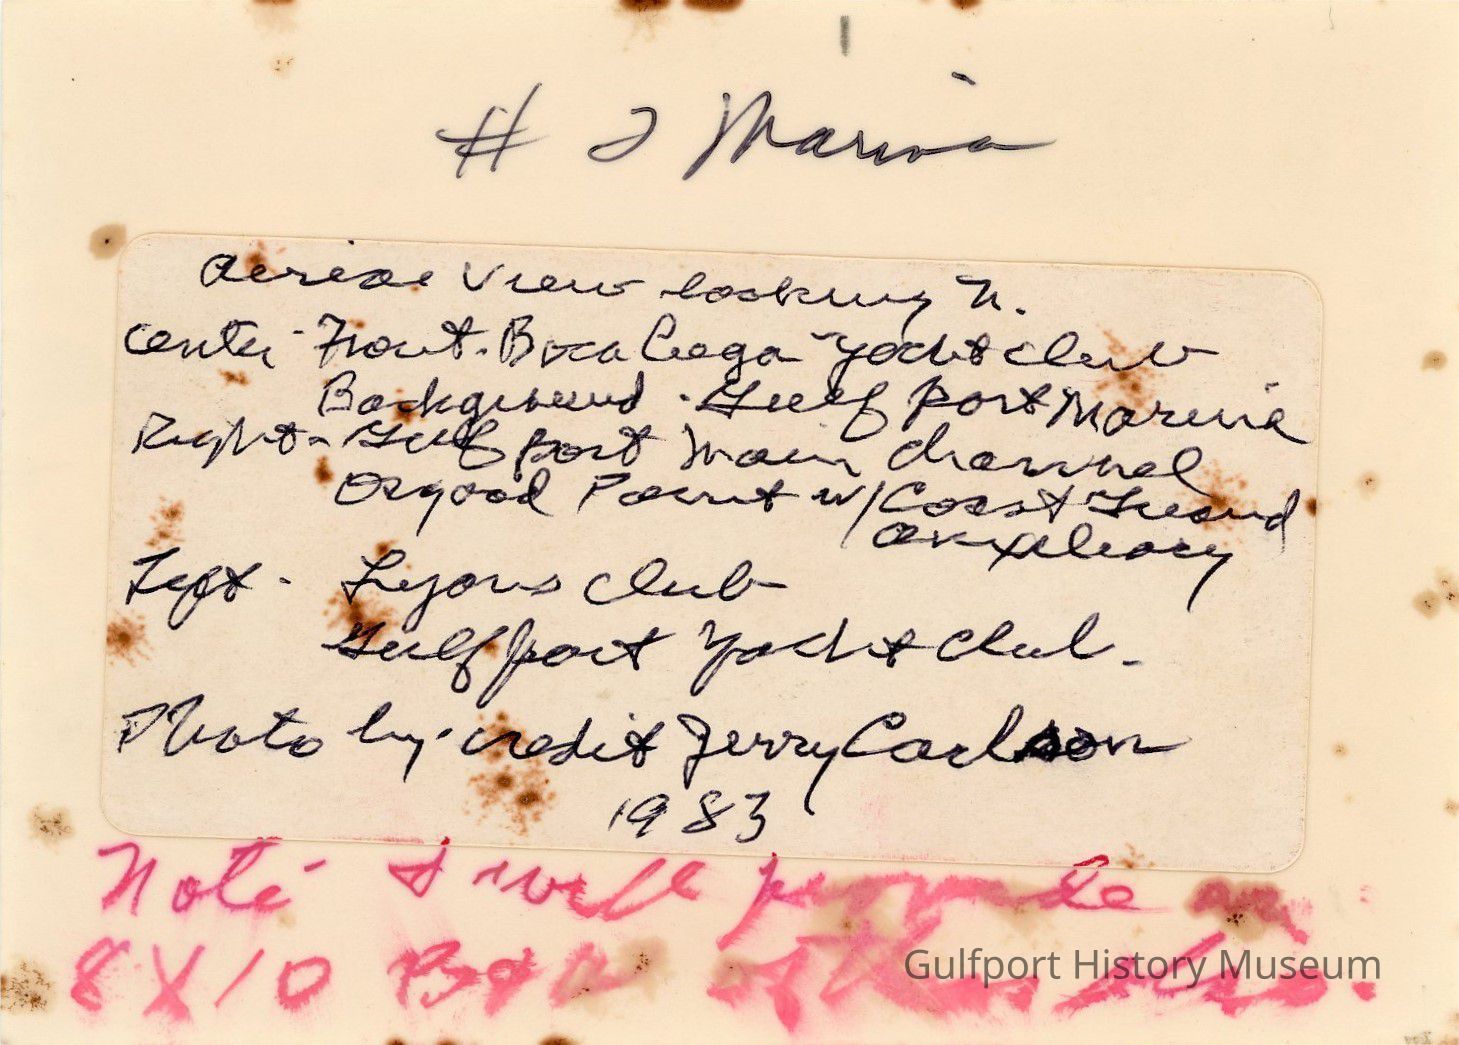 # 2 Marina
Aerial View looking N.
Center Front - Boca Ciega Yacht Club
Background - Gulfport Marina
Right - Gulfport Main Channel
Osgood Point w/ Coast Guard
auxiliary
Left - Lyons Club
Gulfport Yacht Club.
Photo by credit Jerry Carlson
1983
Note - I will provide an
8 X 10 B&W of this.
Gulfport History Museum